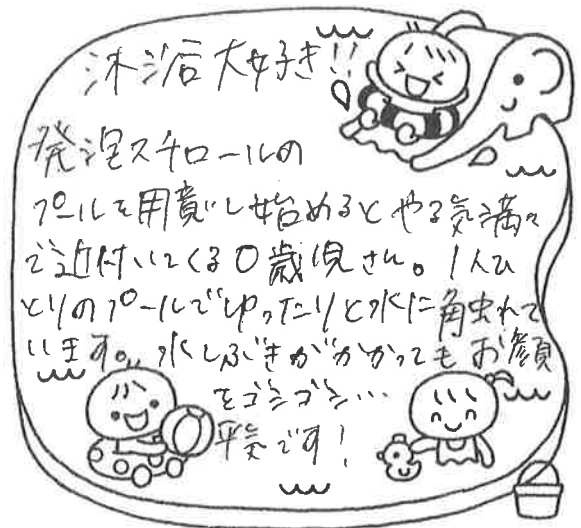 沐浴大好き!!
発泡スチロールの
プールを用意し始めるとやる気満々
で近付いてくる0歳児さん。1人ひ
とりのプールでゆったりと水に触れて
います。水しぶきがかかってもお顔
をゴシゴシ…
平気です!